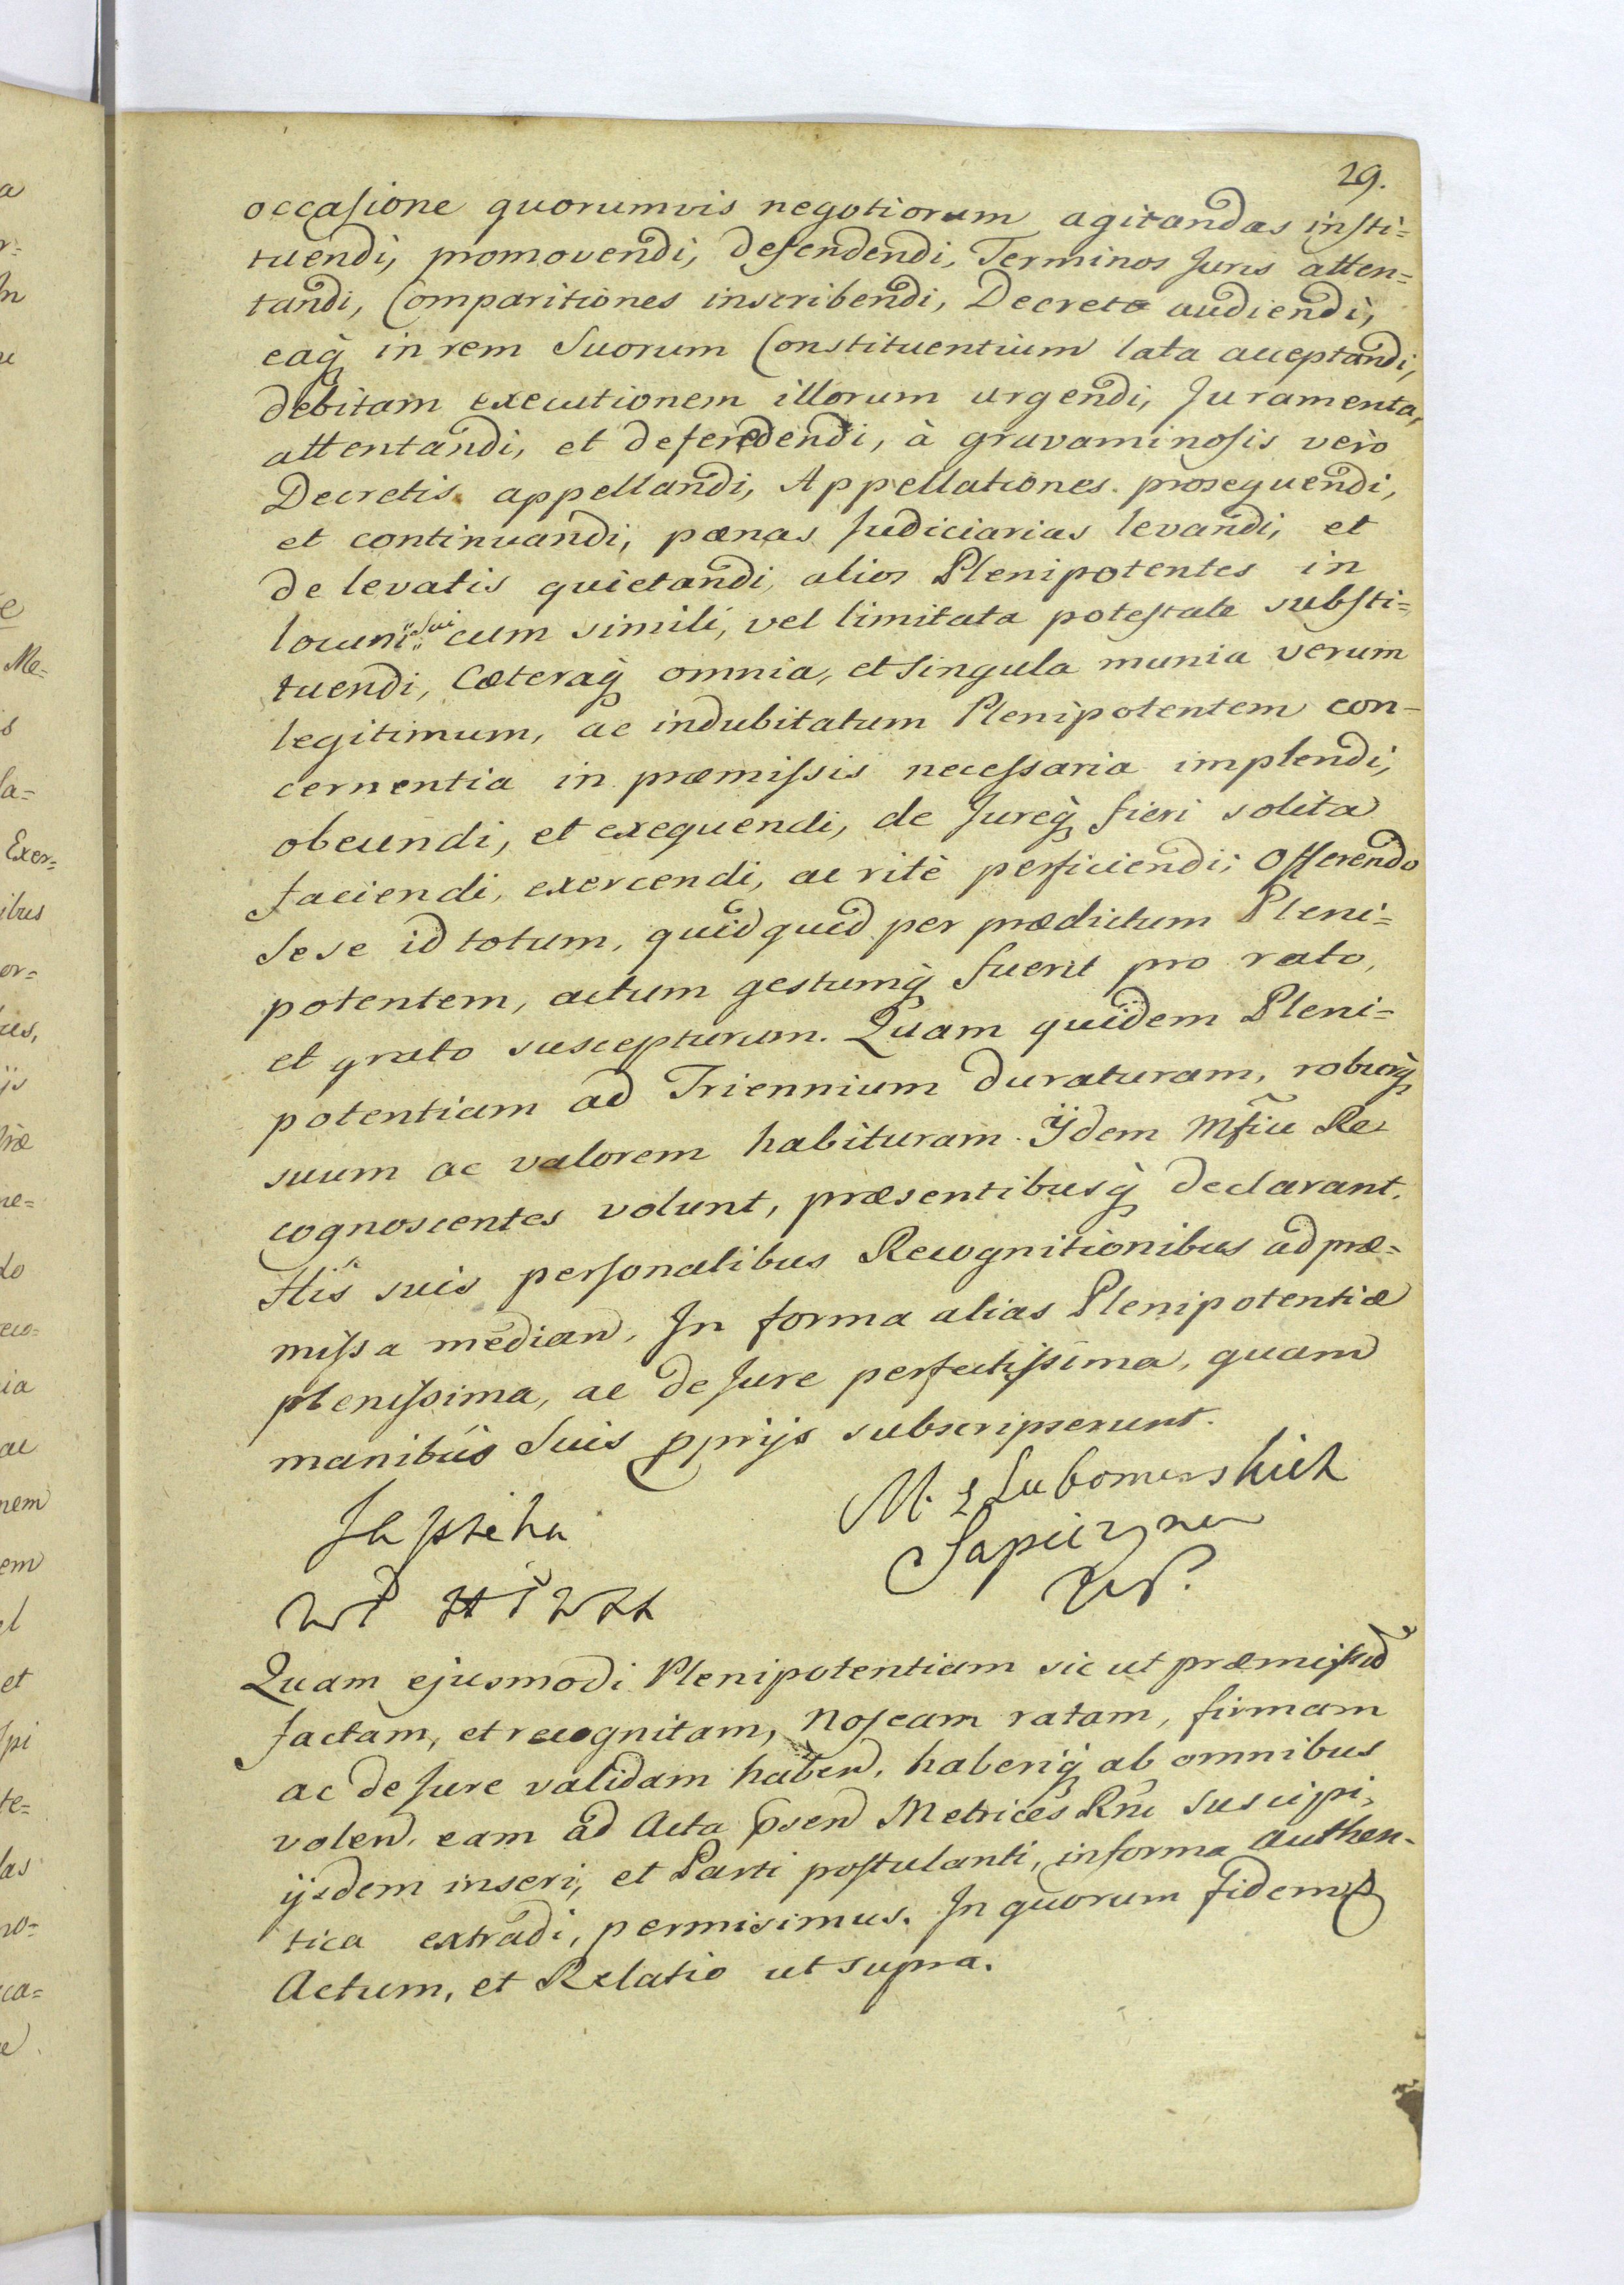 29.
occasione quorumvis negotiorum agitandas insti=
tuendi, promovendi, defendendi, Terminos Juris atten=
tandi, Comparitiones inscribendi, Decreta audiendi,
eaq̃ in rem Suorum Constituentium lata acceptandi,
debitam executionem illorum urgendi, Juramenta,
attentandi, et deferedendi, à gravaminosis verò
Decretis appellandi, Appellationes prosequendi,
et continuandi, pœnas Judiciarias levandi, et
de levatis quietandi, alios Plenipotentes in
locum sui cum simili, vel limitata potestate substi=
tuendi, Cæteraq̃ omnia, et singula munia verum
legitimum, ac indubitatum Plenipotentem con=
cernentia in præmissis necessaria implendi,
obeundi, et exequendi, de Jureq̃ fieri solita
faciendi, exercendi, ac ritè perficiendi; Offerendo
Sese id totum, quidquid per prædictum Pleni=
potentem, actum gestumq̃ fuerit pro rato,
et grato suscepturum. Quam quidem Pleni=
potentiam ad Triennium duraturam, roburq̃
suum ac valorem habituram. Ijdem Mfici Re=
cognoscentes volunt, præsentibusq̃ declarant.
His suis personalibus Recognitionibus ad præ=
missa median. In forma alias Plenipotentiæ
plenissima, ac de Jure perfectissima, quam
manibus Suis pprijs subscripserunt.
M. z Lubomirskich
Sapieha
Sapiezyna
Quam ejusmodi Plenipotentiam sic ut præmissũ
factam, et recognitam, Nos eam ratam, firmam
ac de Jure validam haben. haberiq̃ ab omnibus
volen. eam ad Acta p̃sen Metrices Rñi suscipi,
ijsdem inseri, et Parti postulanti, in forma authen=
tica extradi, permisimus. In quorum fidem
Actum, et Relatio ut supra.